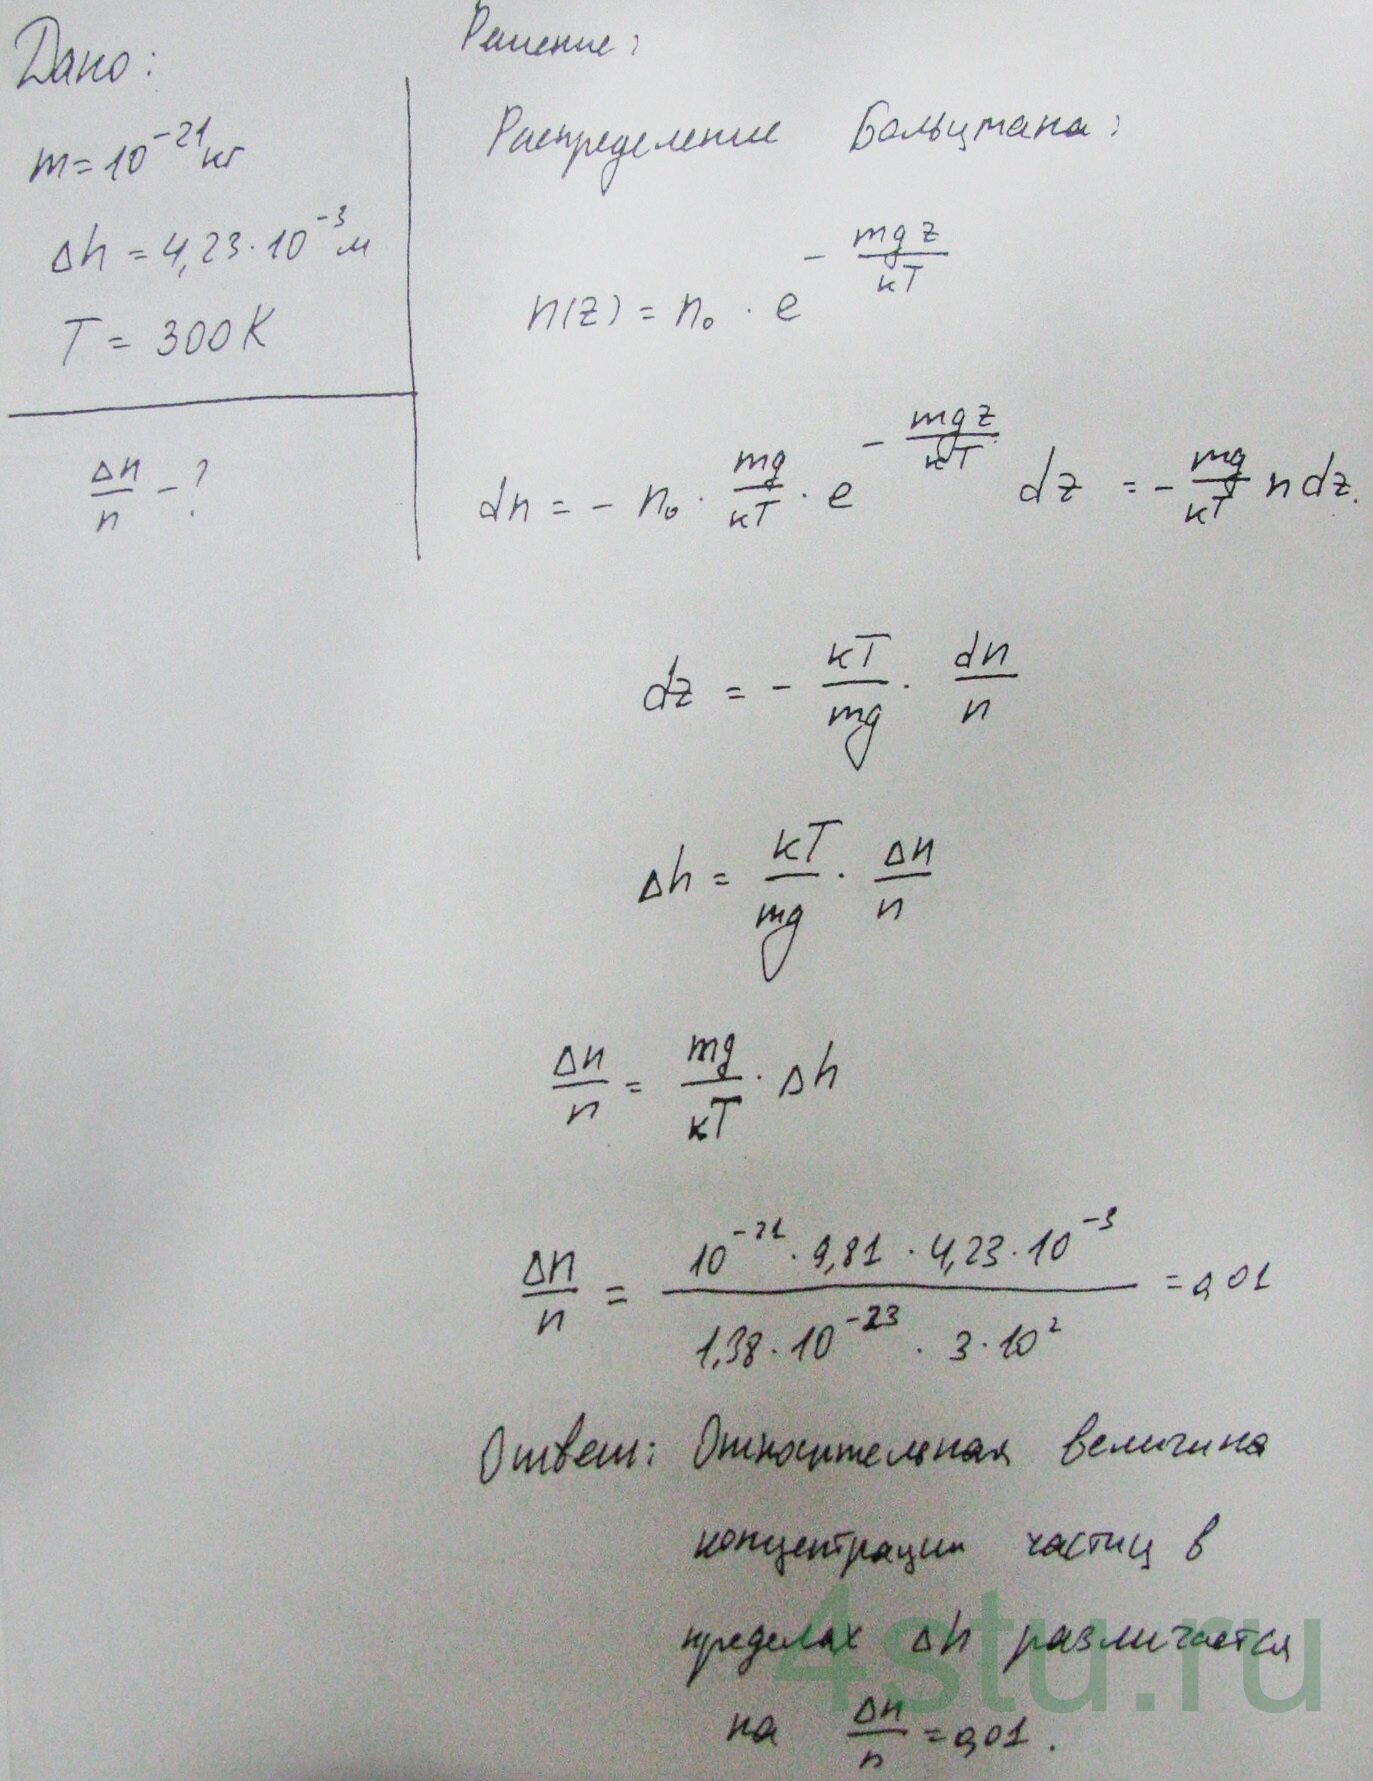 Дано:
m=10^-21 кг
Δh = 4,23·10^-3 м
T = 300K
Δn/n - ?
Решение:
Распределение Больцмана:
n(z) = n₀ · e^(-mgz/кТ)
dn = - n₀ · mg/кТ · e^(-mgz/кТ) dz = - mg/кТ n dz.
dz = - кТ/mg · dn/n
Δh = кТ/mg · Δn/n
Δn/n = mg/кТ · Δh
Δn/n = (10^-21 · 9,81 · 4,23·10^-3)/(1,38·10^-23 · 3·10²) = 0,01
Ответ: Относительная величина
концентрации частиц в
пределах Δh различается
на Δn/n = 0,01.
4stu.ru